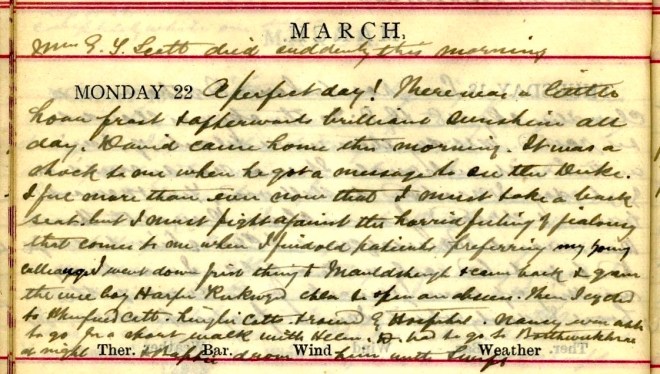 MARCH,
Mrs E. S. Scott died suddenly this morning
MONDAY 22 A perfect day! There was a little
hoar frost & afterwards brilliant sunshine all
day. David came home this morning. It was a
shock to me when he got a message to see the Duke.
I feel more than ever now that I must take a back
seat. but I must fight against this horrid feeling of jealousy
that comes to me when I find old patients preferring my young
colleague I went down first thing to & came back & gave
the wee boy Harper chlor & open an abscess. Then I cycled
to Cott. Cott & round by Hospital. Nancy was able
to go for a short walk with Helen. D. had to go to
at night Ther. Bar. Wind him with Weather